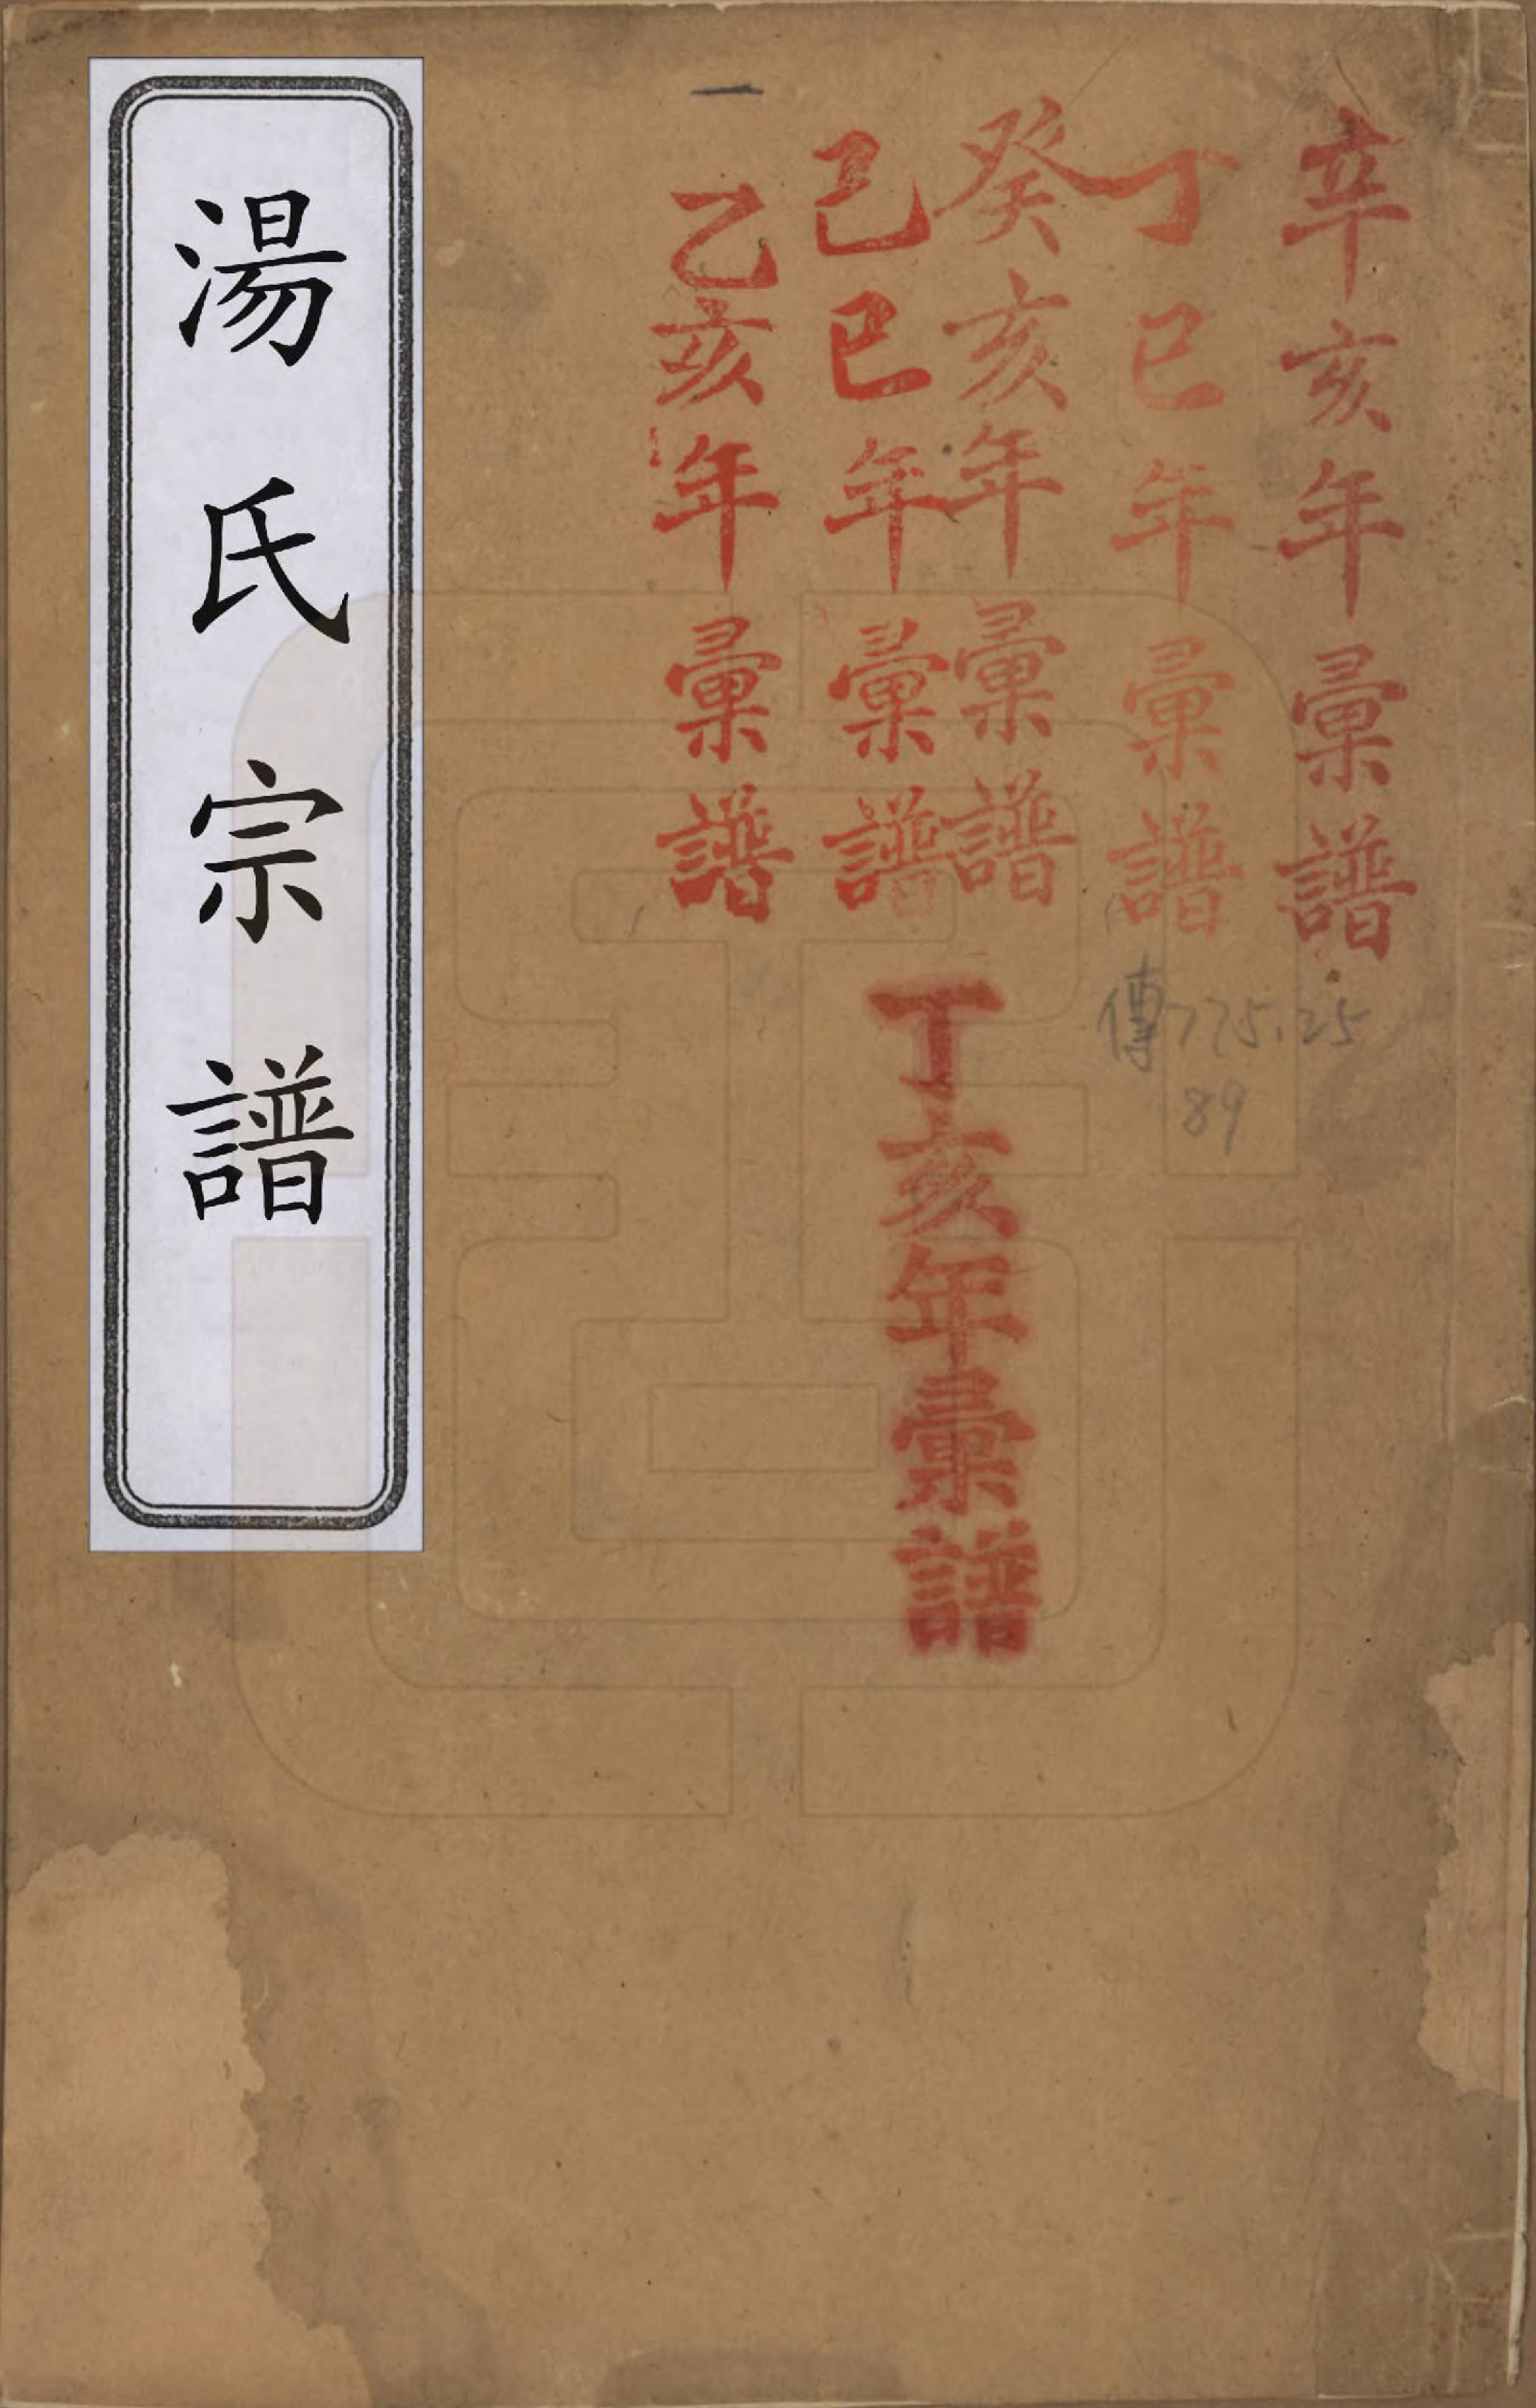 辛亥年彙譜
丁巳年彙譜
癸亥年彙譜
己巳年彙譜
乙亥年彙譜
一
丁亥年彙譜
傳775.25
89
湯氏宗譜